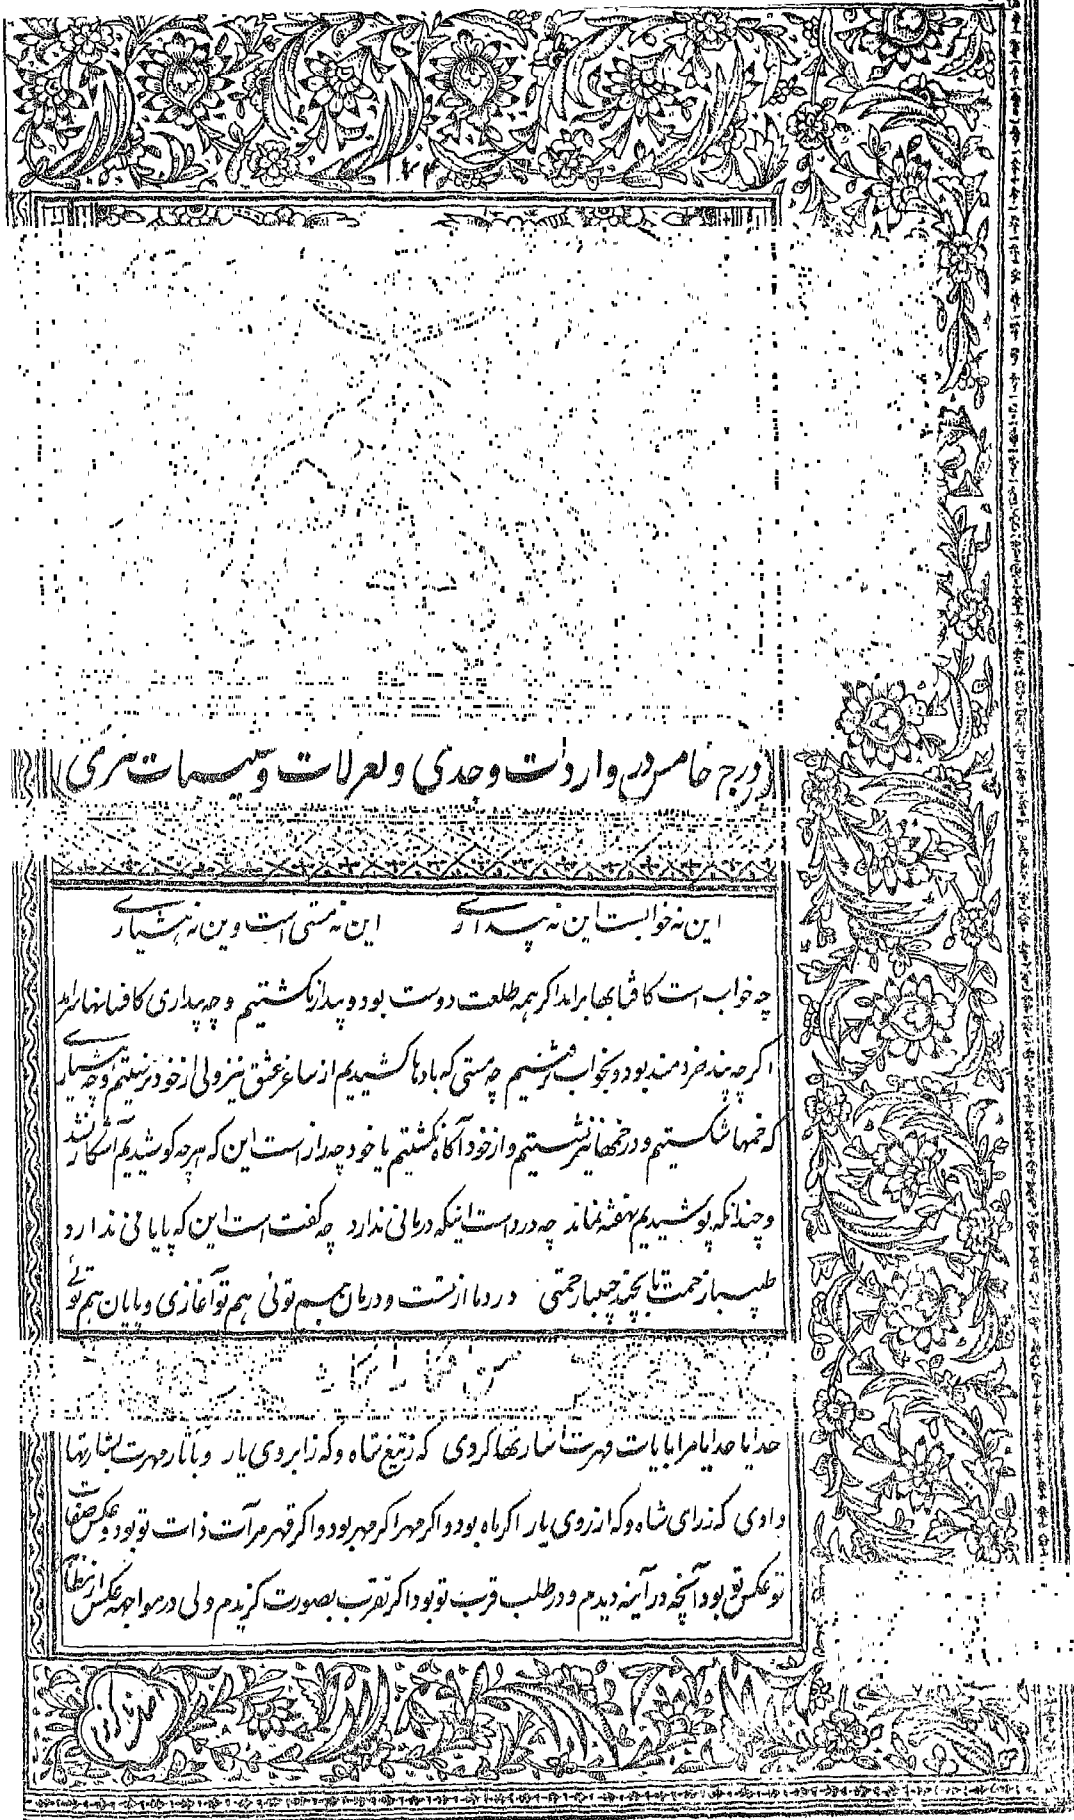 درجه خامس در واردات وجدی و لغزلات و نسیمات هنری
این نه خوابست این نه بیداری این نه مستی است وین نه هشیاری
چه خواب است کافتابها برامد اکر همه طلعت دوست بود و بیدار نکشتیم و چه بیداری کافسانها براند
اکر چه پند خردمند بود و بخواب نرفتیم چه مستی که بادها کشیدیم از ساغر عشق نیز ولی از خود نرفتیم و چه هشیاری
که خمها شکستیم و در خمخانها نشستیم و از خود آکاه نکشتیم یا خود چه راز است این که هر چه کوشیدیم آشکار نشد
و چندانکه پوشیدیم نهفته نماند چه درد است اینکه درمانی ندارد چه کفت است این که پایانی ندارد
طبیبا زحمت تا بچند حبیبا رحمتی درد ما از تست و درمان هم توئی هم تو آغازی و پایان هم توئی
خدایا خدایا مرا بایات قهرت اشارتها کردی که ز تیغ شاه و که ز ابروی یار و باثار مهرت بشارتها
دادی که ز رای شاه و که از روی یار اکر ماه بود و اکر مهر اکر مهر بود و اکر قهر مرآت ذات تو بود و عکس صفات
تو عکس تو بود آنچه در آینه دیدم و در طلب قرب تو بود اکر تقرب بصورت کزیدم ولی در مواجهه عکس از